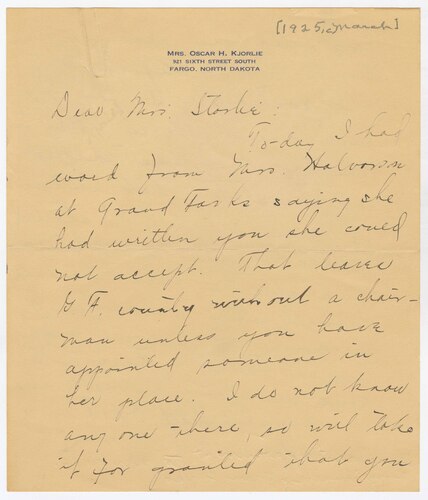 [1925, March]
MRS. OSCAR H. KJORLIE
921 SIXTH STREET SOUTH
FARGO, NORTH DAKOTA
Dear Mrs. Storlie:
To-day I had
word from Mrs. Halvorson
at Grand Forks saying she
had written you she could
not accept. That leaves
G F. county without a chair-
man unless you have
appointed someone in
her place. I do not know
any one there, so will take
it for granted that you